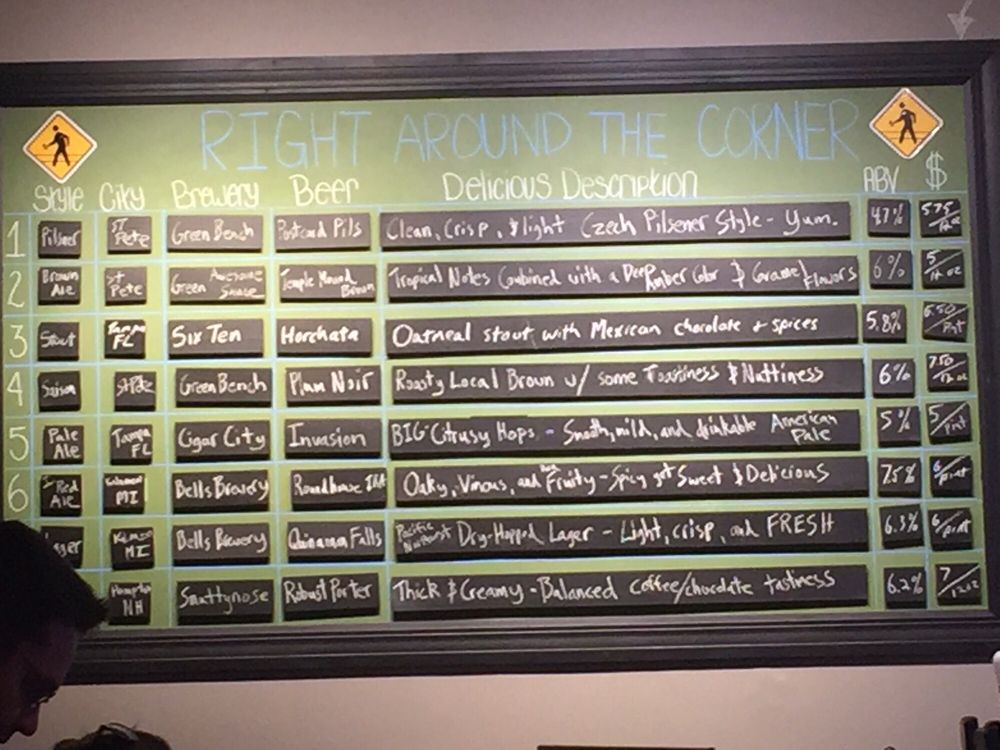 RIGHT AROUND THE CORNER
Style City Brewery Beer Delicious Description ABV $
1 Pilsner St Pete Green Bench Postcard Pils Clean, Crisp, & light Czech Pilsener Style - Yum. 4.7% 5.75/12oz
2 Brown Ale St Pete Green Awesome Temple Mound Brown Tropical Notes Combined with a Deep Amber Color & Caramel Flavors 6% 5/
3 Stout Tampa FL Six Ten Horchata Oatmeal stout with Mexican chocolate & spices 5.8% 6.50/Pint
4 Saison St Pete Green Bench Plan Noir Roasty Local Brown w/ some Toastiness & Nuttiness 6% 7.50/12oz
5 Pale Ale Tampa FL Cigar City Invasion BIG Citrusy Hops - Smooth, mild, and drinkable American Pale 5% 5/Pint
6 Red Ale MI Bells Brewery Roundhouse Oaky, Vinous, and Fruity - Spicy yet Sweet & Delicious 7.5% 6/Pint
MI Bells Brewery Quinannan Falls Pacific Dry-Hopped Lager - Light, crisp, and FRESH 6.3% 6/Pint
Hampton NH Smuttynose Robust Porter Thick & Creamy - Balanced coffee/chocolate tastiness 6.2% 7/12oz